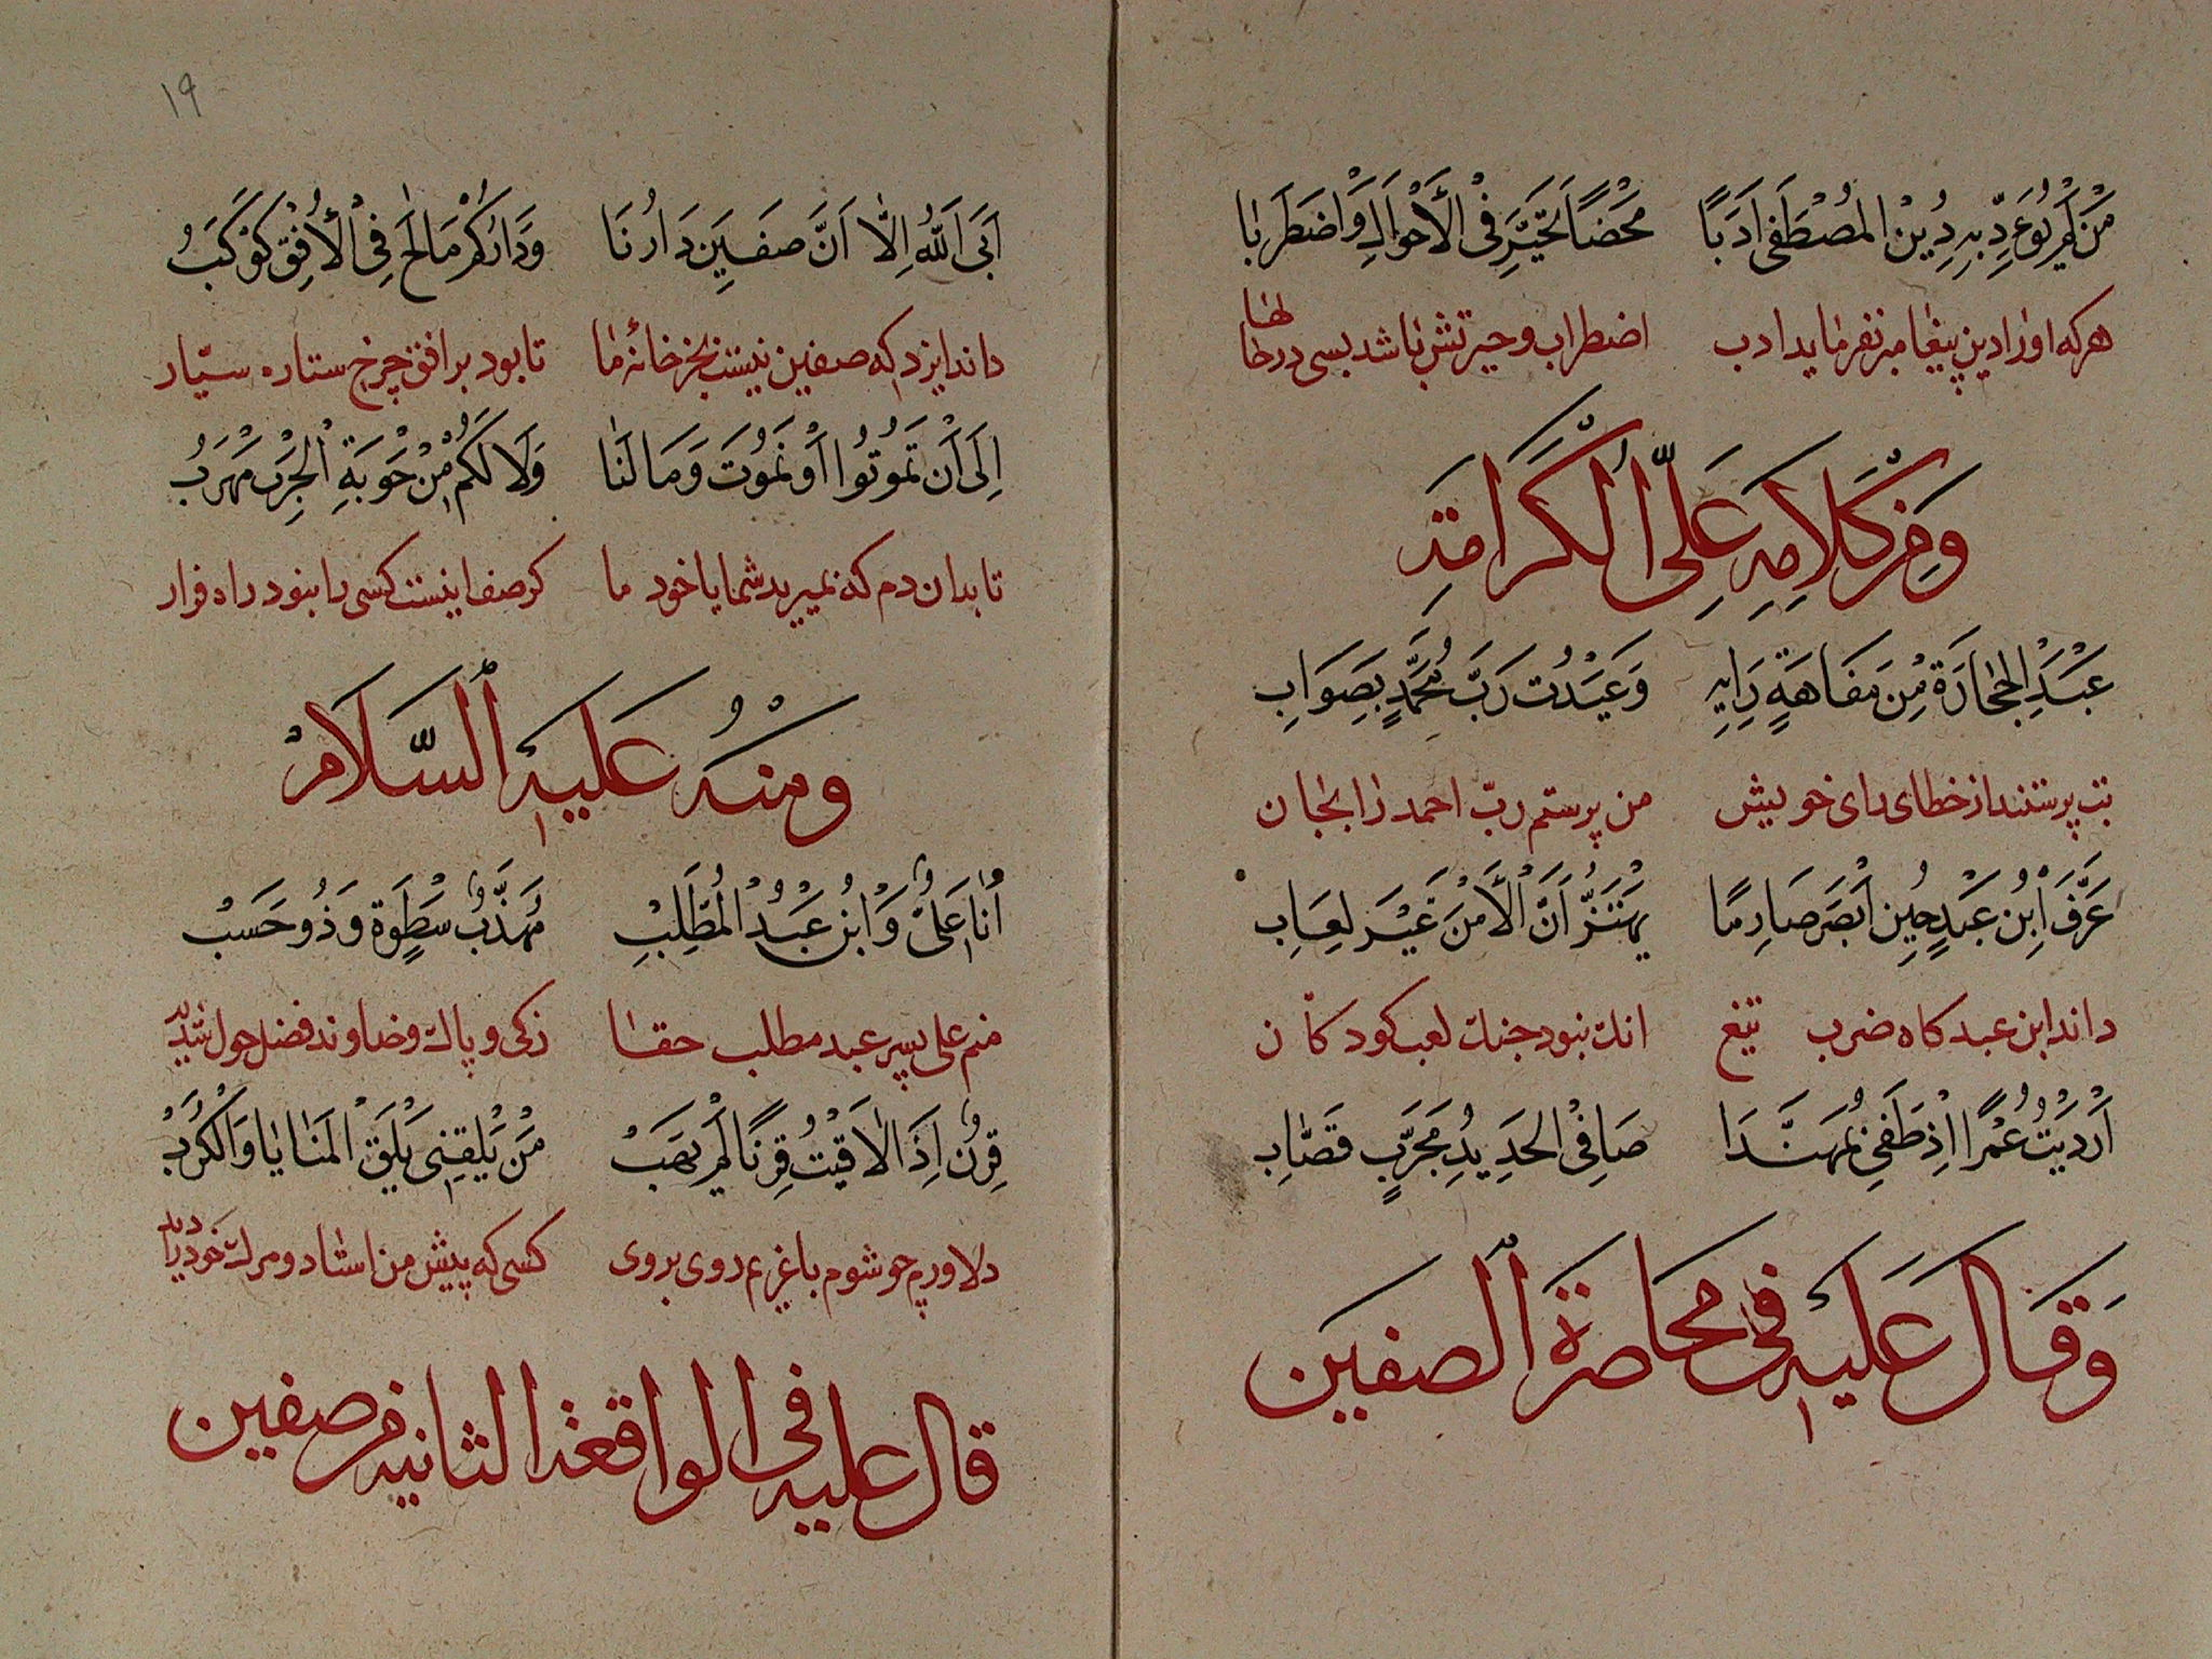 مَنْ لَمْ يُؤَدِّبْهُ دِيْنُ الْمُصْطَفٰى اَدَبًا مَحْضًا تَحَيَّرَ فِى الْأَحْوَالِ وَاضْطَرَبَا
هركه اورا دين پيغامبر نفرمايد ادب اضطراب وحيرتش باشد بسى در حالها
وَمِنْ كَلَامِهِ عَلِىِّ الْكَرَامَةِ
عَبَدَ الْحِجَارَةَ مِنْ سَفَاهَةِ رَايِهِ وَعَبَدْتُ رَبَّ مُحَمَّدٍ بِصَوَابِ
بت پرستند از خطاى راى خويش من پرستم ربّ احمد را بجان
عَرَفَ ابْنُ عَبْدٍ حِينَ اَبْصَرَ صَارِمًا يَهْتَزُّ اَنَّ الْأَمْرَ غَيْرَ لِعَابِ
داند ابن عبد كاه ضرب تيغ انك نبود جنك لعب كودكان
اَرْدَيْتُ عُمْرًا اِذْ طَغٰى بِمُهَنَّدَا صَافِى الْحَدِيدِ مُجَرَّبٍ قَصَّابِ
وَقَالَ عَلَيْهِ فى محاصرة الصفين
١٩
اَبَى اَللّٰهُ اِلَّا اَنَّ صَفِيِّنَ دَارُنَا وَدَارُكُمْ مَالَحَ فِى الْأُفْقِ كَوْكَبُ
داند ايزد كه صفين نيست بجز خانهٔ ما تا بود بر افق چرخ ستاره سيّار
اِلٰى اَنْ تَمُوتُوا اَوْ نَمُوتَ وَمَا لَنَا وَلَا لَكُمْ مِنْ حَوْبَةِ الْحَرْبِ مَهْرَبُ
تا بدان دم كه بميريد شما يا خود ما كز صف اينست كسى را نبود راه فرار
ومنه عَلَيْهِ السَّلَامْ
اَنَا عَلِىٌّ وَابْنُ عَبْدُ الْمُطَّلِبْ مُهَذَّبٌ سَطْوَة وَذُو حَسَبْ
منم على پسر عبد مطلب حقا زكى و پاك و خداوند فضل حول شديد
قِرْنٌ اِذَا لَاقَيْتُ قِرْنًا لَمْ يَهَبْ مَنْ يَلْقَنِى يَلْقَ الْمَنَايَا وَالْكُرَبْ
دلاورم چو شوم با غريم روى بروى كسى كه پيش من استاد و مرك خود ديد
قال عليه فى الواقعة الثانيه فى صفين